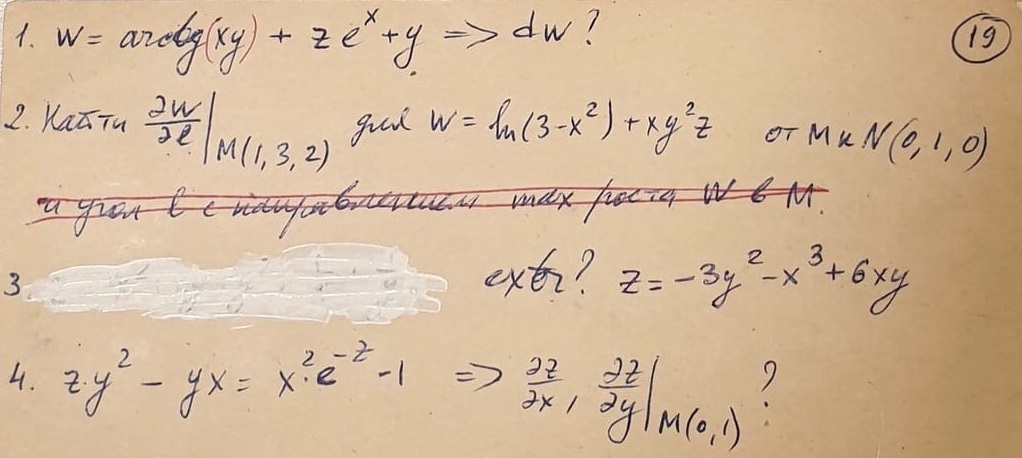 1. W = arctg(xy) + z e^x + y => dw?
19
2. Найти ∂W/∂l |M(1, 3, 2) для W = ln(3-x²) + xy²z от M к N(0, 1, 0)
и угол l с направлением max роста W в M.
3 extr? z = -3y² - x³ + 6xy
4. z·y² - yx = x²·e^-z - 1 => ∂z/∂x, ∂z/∂y |M(0, 1) ?